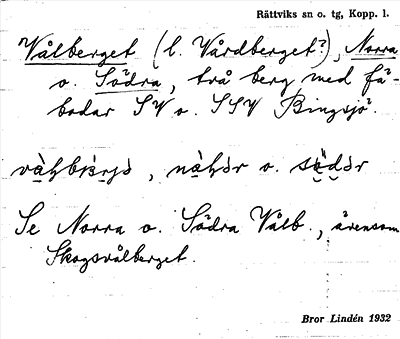 Rättviks sn o. tg, Kopp. l.
Vålberget (l. Vårdberget?), Norra
o. Södra, två berg med fä-
bodar SV o. SSV Bingsjö.
Se Norra o. Södra Vålb., ävensom
Skogsvålberget.
Bror Lindén 1932